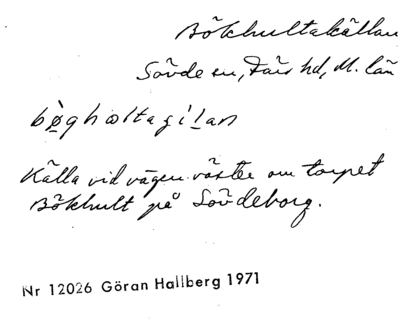 Bökhultakällan
Sövde sn, Färs hd, M. län
bø̀ghωltaʒiḷan
Källa vid vägen väster om torpet
Bökhult på Sövdeborg.
Nr 12026 Göran Hallberg 1971